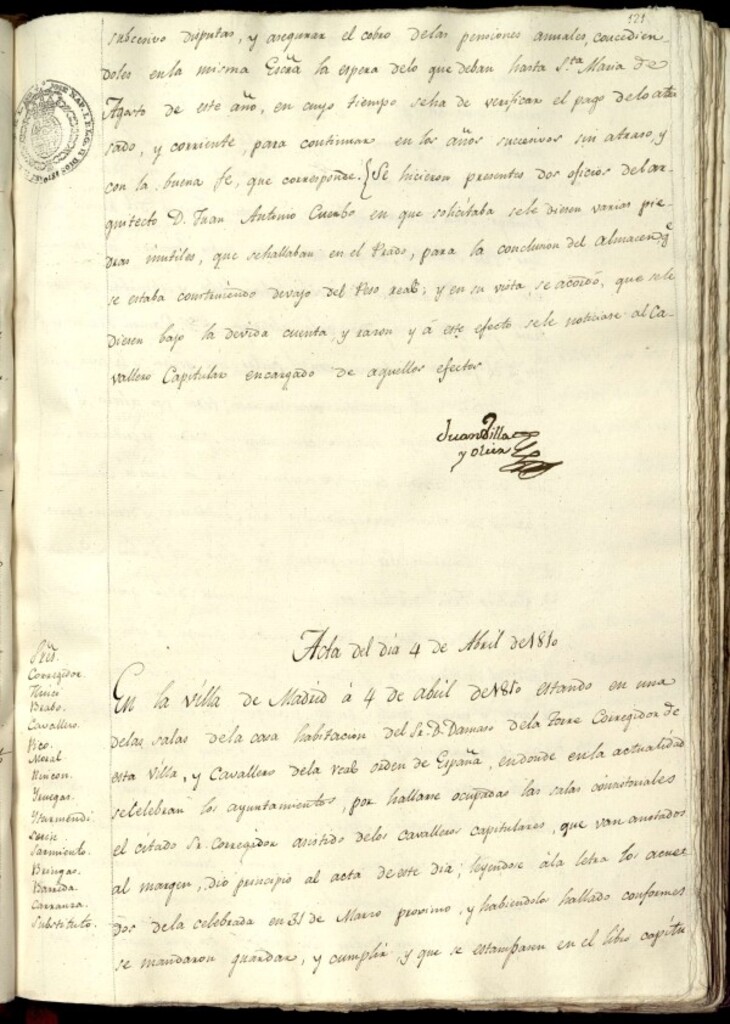 121.
subcesivo disputas, y asegurar el cobro delas pensiones anuales, concedien-
doles en la misma Escrã la espera delo que deban hasta S.ta Maria de
Agosto de este año, en cuyo tiempo seha de verificar el pago delo atra
sado, y corriente, para continuar en los años sucesivos sin atraso, y
con la buena fe, que corresponde. {Se hicieron presentes dos oficios del ar-
quitecto D. Juan Antonio Cuerbo en que solicitaba sele diesen varias pie-
dras inutiles, que sehallaban en el Prado, para la conclusion del almacen q.e
se estaba construiendo devajo del Peso real; y en su vista se acordó, que sele
diesen bajo la devida cuenta, y razon y á este efecto sele noticiase al Ca-
vallero Capitular encargado de aquellos efectos
Juan Villa
y Olier
Acta del dia 4 de Abril de 1810
Sres.
Corregidor.
Brabo.
Cavallero.
Pico.
Moral
Rincon.
Yruegas.
Sarmiento.
Bringas.
Barreda.
Carranza.
Substituto.
En la villa de Madrid á 4 de abril de 1810 estando en una
delas salas dela casa habitacion del Sr. D. Damaso dela Torre Corregidor de
esta villa, y Cavallero dela real orden de España, endonde en la actualidad
secelebran los ayuntamientos, por hallarse ocupadas las salas consistoriales
el citado Sr. Corregidor asistido delos cavalleros capitulares, que van anotados
al margen, dio principio al acta de este dia; leyendose á la letra los acuer
dos dela celebrada en 31 de Marzo proximo, y habiendolos hallado conformes
se mandaron guardar, y cumplir y que se estampasen en el libro capitu